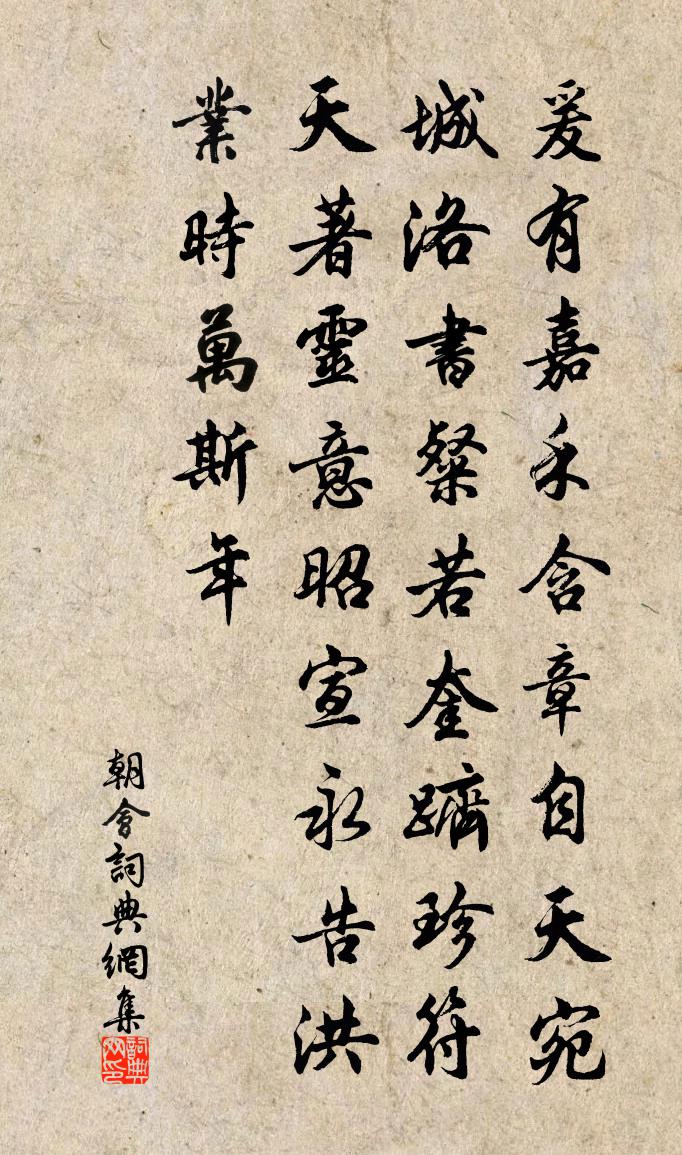 爰有嘉禾含章自天宛
城洛書粲若奎躋珍符
天著靈意昭宣永告洪
業時萬斯年
朝會詞典網集
詞典網印